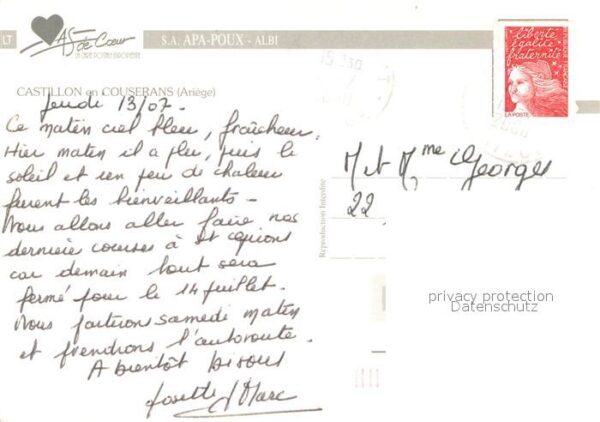 LT
AS de Cœur
LA CARTE POSTALE EUROPEENNE
S.A. APA-POUX - ALBI
CASTILLON en COUSERANS (Ariège)
Jeudi 13/07.
Ce matin ciel bleu, fraîcheur.
Hier matin il a plu, puis le
soleil et un peu de chaleur
furent les bienveillants.
Nous allons aller faire nos
dernière courses à St Girons
car demain tout sera
fermé pour le 14 juillet.
Nous partirons samedi matin
et prendrons l'autoroute.
A bientôt bisous
Josette Marc
Reproduction Interdite
liberté
égalité
fraternité
LA POSTE
15H30
2000
M et Mme Georges
22
privacy protection
Datenschutz